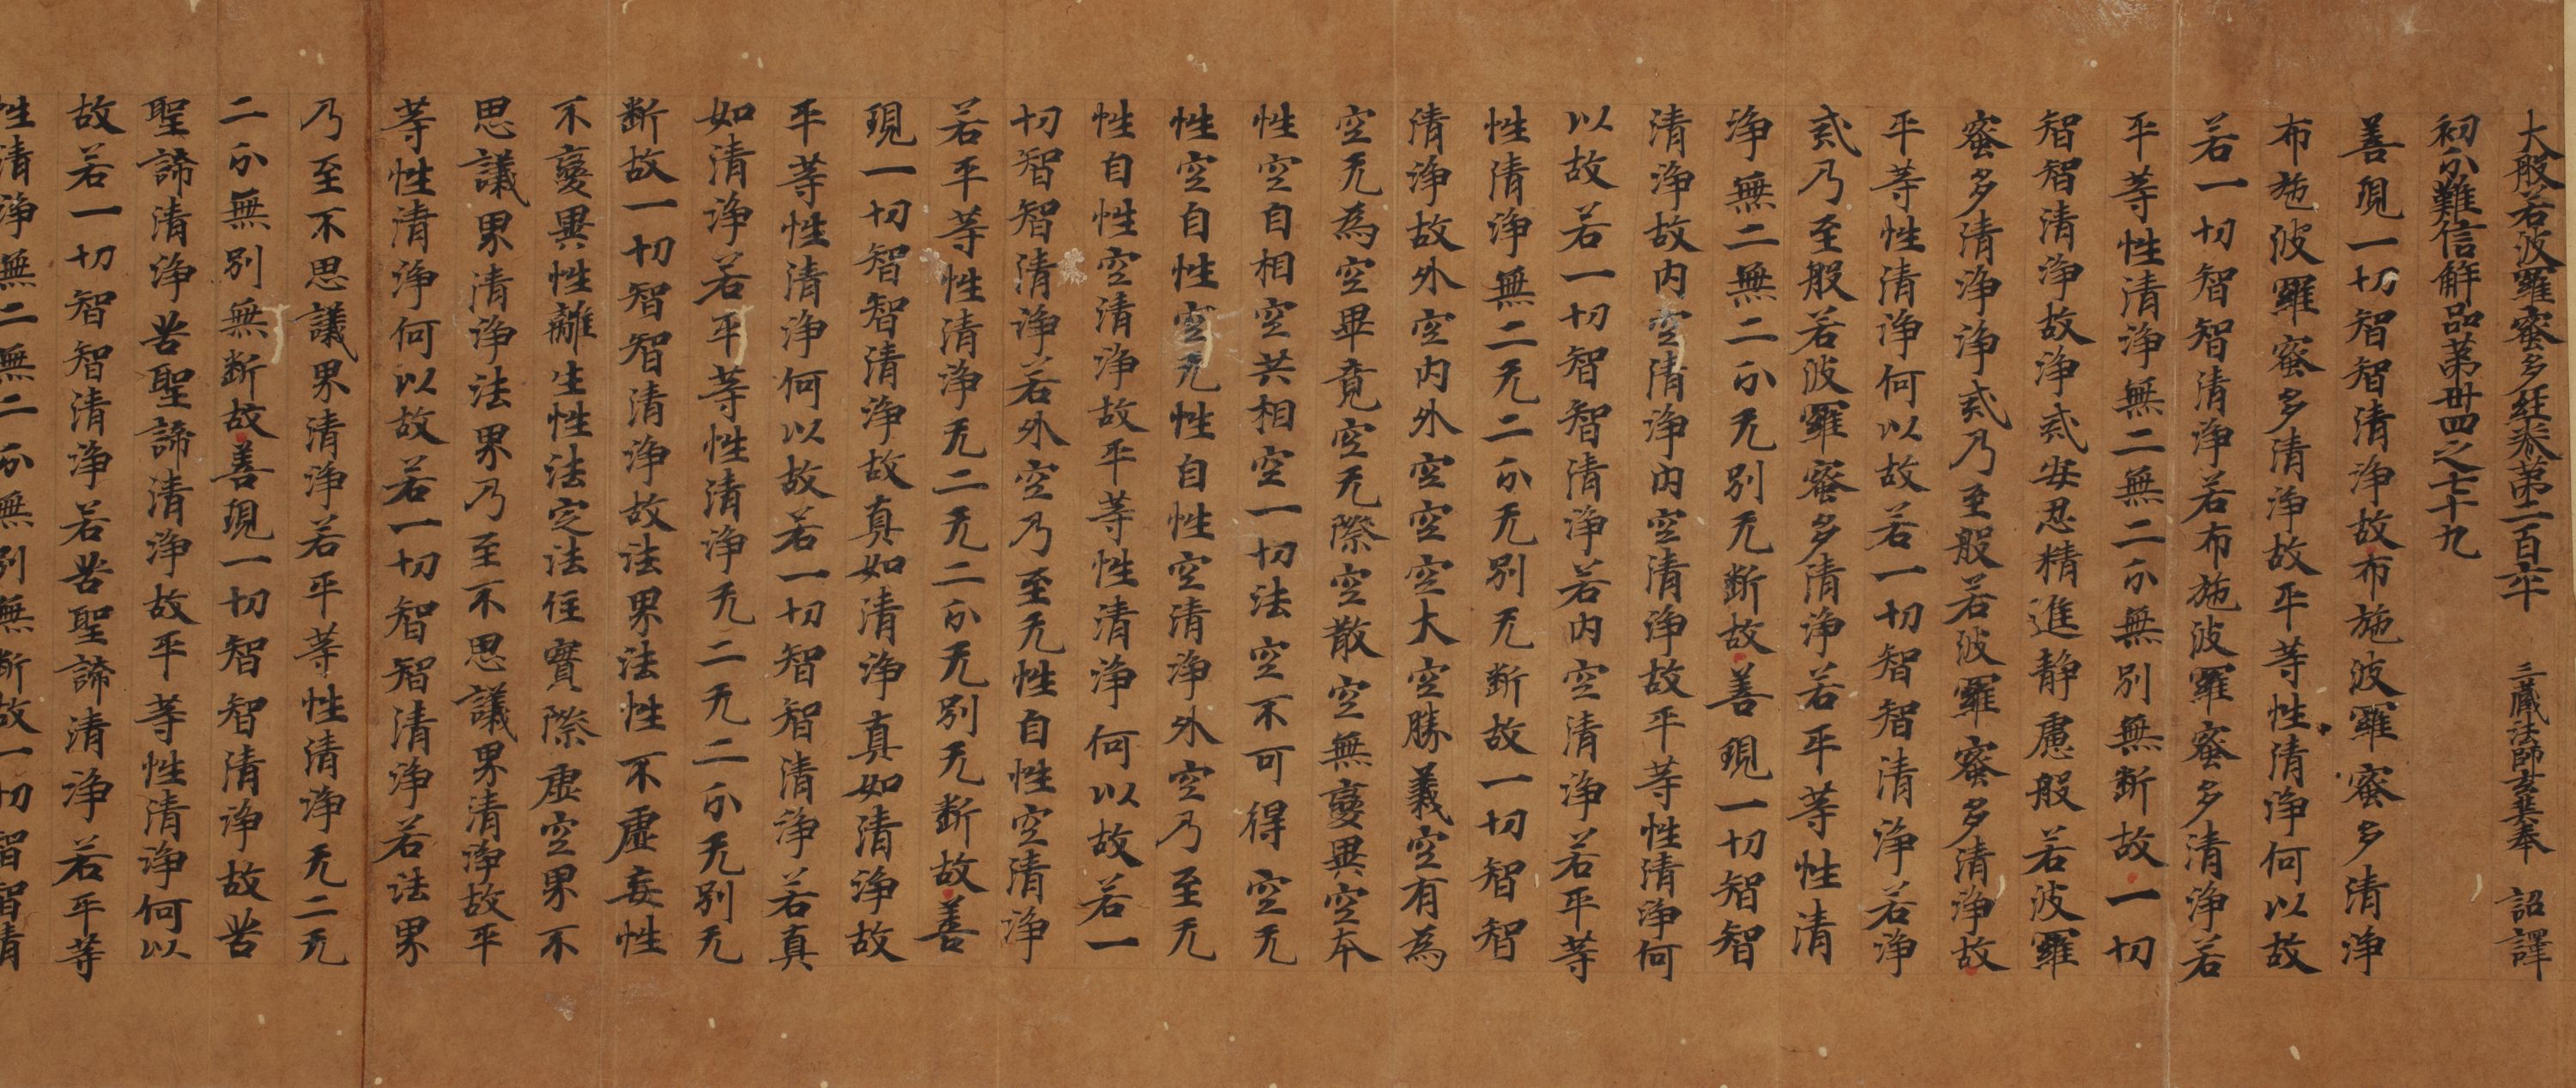 大般若波羅蜜多經卷第二百六十 三藏法師玄奘奉 詔譯
初分難信解品第卅四之七十九
善現一切智智清淨故布施波羅蜜多清淨
布施波羅蜜多清淨故平等性清淨何以故
若一切智智清淨若布施波羅蜜多清淨若
平等性清淨無二無二分無別無断故一切
智智清淨故淨戒安忍精進靜慮般若波羅
蜜多清淨淨戒乃至般若波羅蜜多清淨故
平等性清淨何以故若一切智智清淨若淨
戒乃至般若波羅蜜多清淨若平等性清
淨無二無二分无別无断故善現一切智智
清淨故内空清淨内空清淨故平等性清淨何
以故若一切智智清淨若内空清淨若平等
性清淨無二无二分无別无断故一切智智
清淨故外空内外空空空大空勝義空有為
空无為空畢竟空无際空散空無變異空本
性空自相空共相空一切法空不可得空无
性空自性空无性自性空清淨外空乃至无
性自性空清淨故平等性清淨何以故若一
切智智清淨若外空乃至无性自性空清淨
若平等性清淨无二无二分无別无断故善
現一切智智清淨故真如清淨真如清淨故
平等性清淨何以故若一切智智清淨若真
如清淨若平等性清淨无二无二分无別无
断故一切智智清淨故法界法性不虛妄性
不變異性離生性法定法住實際虛空界不
思議界清淨法界乃至不思議界清淨故平
等性清淨何以故若一切智智清淨若法界
乃至不思議界清淨若平等性清淨无二无
二分無別無断故善現一切智智清淨故苦
聖諦清淨苦聖諦清淨故平等性清淨何以
故若一切智智清淨若苦聖諦清淨若平等
性清淨無二無二分無別無断故一切智智清